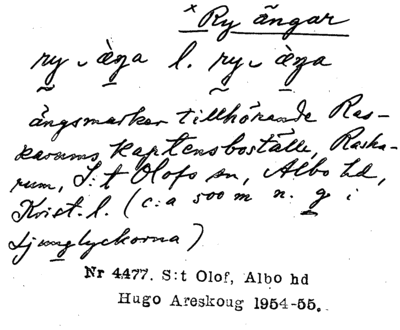 × Ry ängar
ry ängsmarker tillhörande Ras-
karums kaptensboställe, Raska-
rum, S:t Olofs sn, Albo hd,
Krist. l. (c:a 500 m n. g i
Ljunglyckorna)
Nr 4477. S:t Olof, Albo hd
Hugo Areskoug 1954-55.